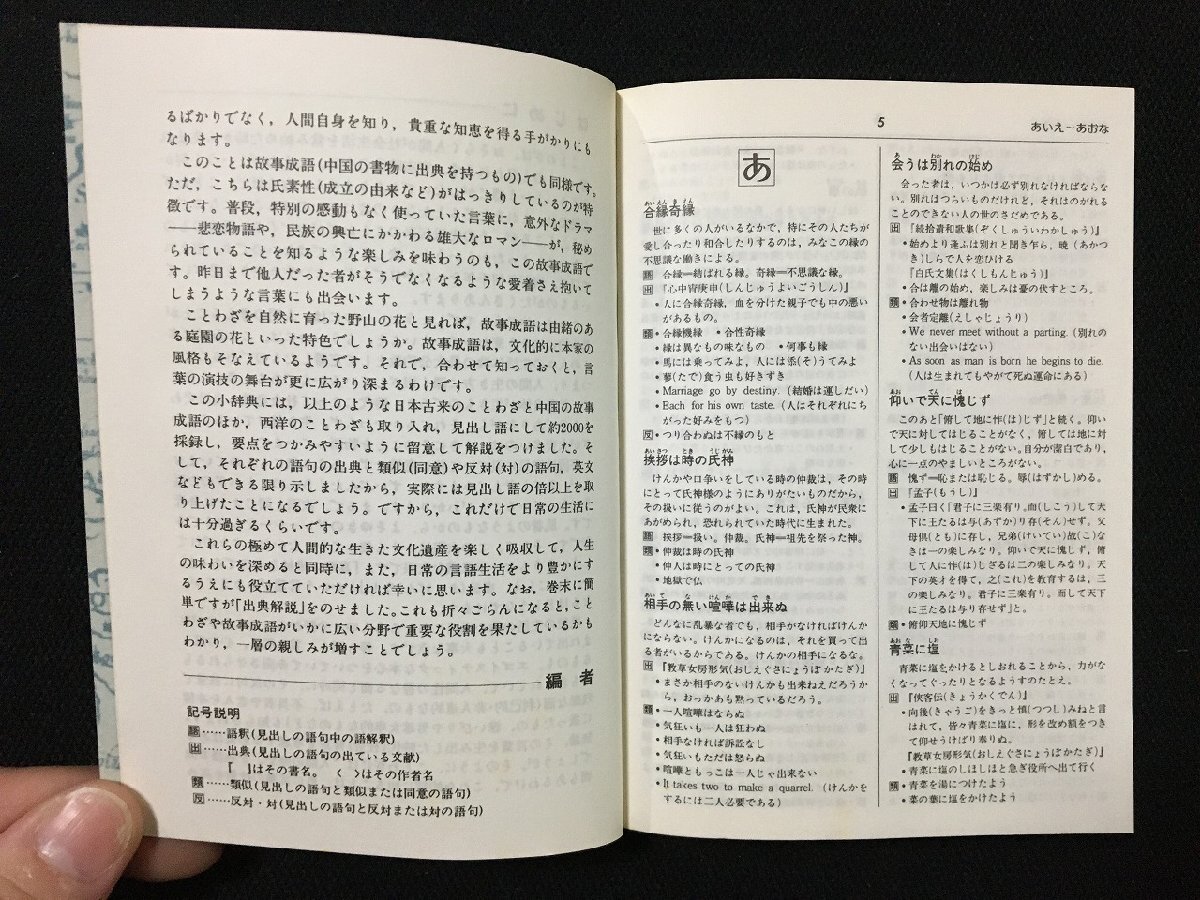 るばかりでなく，人間自身を知り，貴重な知恵を得る手がかりにも
なります。
このことは故事成語(中国の書物に出典を持つもの)でも同様です。
ただ，こちらは氏素性(成立の由来など)がはっきりしているのが特
徴です。普段，特別の感動もなく使っていた言葉に，意外なドラマ
──悲恋物語や，民族の興亡にかかわる雄大なロマン──が，秘め
られていることを知るような楽しみを味わうのも，この故事成語で
す。昨日まで他人だった者がそうでなくなるような愛着さえ抱いて
しまうような言葉にも出会います。
ことわざを自然に育った野山の花と見れば，故事成語は由緒のあ
る庭園の花といった特色でしょうか。故事成語は，文化的に本家の
風格もそなえているようです。それで，合わせて知っておくと，言
葉の演技の舞台が更に広がり深まるわけです。
この小辞典には，以上のような日本古来のことわざと中国の故事
成語のほか，西洋のことわざも取り入れ，見出し語にして約2000を
採録し，要点をつかみやすいように留意して解説をつけました。そ
して，それぞれの語句の出典と類似(同意)や反対(対)の語句，英文
などもできる限り示しましたから，実際には見出し語の倍以上を取
り上げたことになるでしょう。ですから，これだけで日常の生活に
は十分過ぎるくらいです。
これらの極めて人間的な生きた文化遺産を楽しく吸収して，人生
の味わいを深めると同時に，また，日常の言語生活をより豊かにす
るうえにも役立てていただければ幸いに思います。なお，巻末に簡
単ですが「出典解説」をのせました。これも折々ごらんになると，こと
わざや故事成語がいかに広い分野で重要な役割を果たしているかも
わかり，一層の親しみが増すことでしょう。
編 者
記号説明
語……語釈(見出しの語句中の語解釈)
出……出典(見出しの語句の出ている文献)
『 』はその書名。〈 〉はその作者名
類……類似(見出しの語句と類似または同意の語句)
反……反対・対(見出しの語句と反対または対の語句)
5
あいえ－あおな
あ
合縁奇縁
世に多くの人がいるなかで，特にその人たちが
愛し合ったり和合したりするのは，みなこの縁の
不思議な働きによる。
語 合縁＝結ばれる縁。奇縁＝不思議な縁。
出 『心中宵庚申(しんじゅうよいごうしん)』
•人に合縁奇縁，血を分けた親子でも中の悪い
があるもの。
類•合縁機縁 •合性奇縁
•縁は異なもの味なもの •何事も縁
•馬には乗ってみよ，人には添(そ)うてみよ
•蓼(たで)食う虫も好きずき
•Marriage go by destiny.(結婚は運しだい)
•Each for his own taste.(人はそれぞれにち
がった好みをもつ)
反•つり合わぬは不縁のもと
挨拶は時の氏神
けんかや口争いをしている時の仲裁は，その時
にとって氏神様のようにありがたいものだから，
その扱いに従うのがよい。これは，氏神が民衆に
あがめられ，恐れられていた時代に生まれた。
語 挨拶＝扱い。仲裁。氏神＝祖先を祭った神。
類•仲裁は時の氏神
•仲人は時にとっての氏神
•地獄で仏
相手の無い喧嘩は出来ぬ
どんなに乱暴な者でも，相手がなければけんか
にならない。けんかになるのは，それを買って出
る者がいるからである。けんかの相手になるな。
出 『教草女房形気(おしえぐさにょうぼかたぎ)』
•まさか相手のないけんかも出来ねえだろうか
ら，おっかあも黙っているだろう。
類•一人喧嘩はならぬ
•気狂いも一人は狂わぬ
•相手なければ訴訟なし
•気狂いもただは怒らぬ
•喧嘩ともっこは一人じゃ出来ない
•It takes two to make a quarrel.(けんかを
するには二人必要である)
会うは別れの始め
会った者は，いつかは必ず別れなければならな
い。別れはつらいものだけれど，それはのがれる
ことのできない人の世のさだめである。
出 『続拾遺和歌集(ぞくしゅういわかしゅう)』
•始めより逢ふは別れと聞き乍ら，暁(あかつ
き)しらで人を恋ひける
『白氏文集(はくしもんじゅう)』
•合は離の始め，楽しみは憂の伏すところ。
類•合わせ物は離れ物
•会者定離(えしゃじょうり)
•We never meet without a parting.(別れの
ない出会いはない)
•As soon as man is born he begins to die.
(人は生まれてもやがて死ぬ運命にある)
仰いで天に愧じず
このあと「俯して地に怍(は)じず」と続く。仰い
で天に対してはじることがなく，俯しては地に対
して少しもはじることがない。自分が潔白であり，
心に一点のやましいところがない。
語 愧ず＝恥または恥じる。辱(はずかし)める。
出 『孟子(もうし)』
•孟子曰く「君子に三楽有り。而(しこう)して天
下に王たるは与(あずか)り存(そん)せず。父
母倶(とも)に存し，兄弟(けいてい)故(こ)な
きは一の楽しみなり。仰いで天に愧じず，俯
して人に怍(は)じざるは二の楽しみなり。天
下の英才を得て，之(これ)を教育するは，三
の楽しみなり。君子に三楽有り。而して天下
に王たるは与り存せず」と。
類•俯仰天地に愧じず
青菜に塩
青菜に塩をかけるとしおれることから，力がな
くなってぐったりとなるようすのたとえ。
出 『侠客伝(きょうかくでん)』
•向後(きゃうご)をきっと慎(つつし)みねと言
はれて，皆々青菜に塩に，形を改め額をつき
て仰せうけばり寄りぬ。
『教草女房形気(おしえぐさにょうぼかたぎ)』
•青菜に塩のしほしほと急ぎ役所へ出て行く
類•青菜を湯につけたよう
•菜の葉に塩をかけたよう